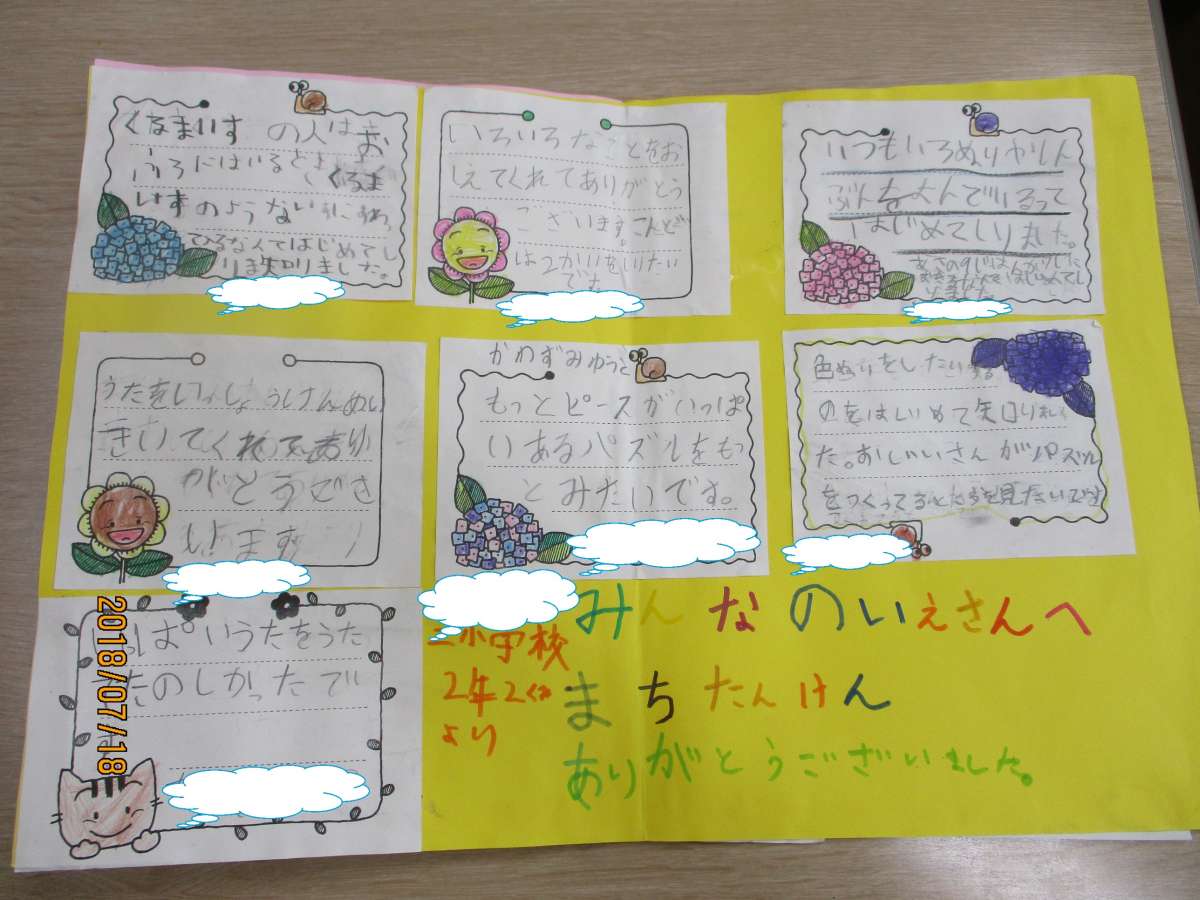 くるまいす の人は お
ふろにはいるとき くるま
いすのような いすにすわっ
てるなんてはじめてし
り ました。
いろいろなことをお
しえてくれてありがとう
ございます。こんど
は2かいをしりたい
です
いつもいろぬりやしん
ぶんをよんでいるって
はじめてしりました。
うたをいっしょうけんめい
きいてくれてあり
がとうござ
います
かわずみゆうと
もっとピースがいっぱ
いあるパズルをも
とみたいです。
色ぬりをしたい
のをはじめて知りまし
た。おじいさんがパズル
をつくってるところを見たいです
ぱいうたをうた
たのしかったで
みんなのいえさんへ
小学校
2年2くみ
より
まちたんけん
ありがとうございました。
2018/07/18